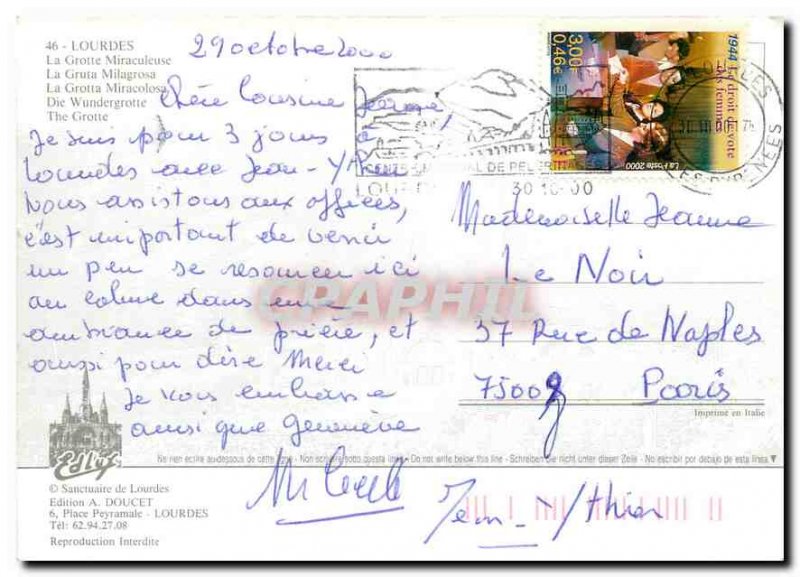 46 - LOURDES
La Grotte Miraculeuse
La Gruta Milagrosa
La Grotta Miracolosa
Die Wundergrotte
The Grotte
29 octobre 2000
Chère Cousine Jeanne,
Je suis pour 3 jours à
Lourdes avec Jean-Ythier
Nous assistons aux offices,
c'est important de venir
un peu se resourcer ici
au calme dans une
ambiance de prière, et
aussi pour dire Merci
Je vous embrasse
ainsi que Geneviève
Jean-Ythier
3,00F
0,46€
1944 Le droit de vote
des femmes
La Poste 2000
30 10 00
LOURDES
30 10-00
Mademoiselle Jeanne
Le Noir
37 Rue de Naples
75008 Paris
CPAPHIL
Imprimé en Italie
Edlux
Ne rien écrire au-dessous de cette ligne - Non scrivere sotto questa linea - Do not write below this line - Schreiben Sie nicht unter dieser Zeile - No escribir por debajo de esta línea
© Sanctuaire de Lourdes
Edition A. DOUCET
6, Place Peyramale - LOURDES
Tél: 62.94.27.08
Reproduction Interdite